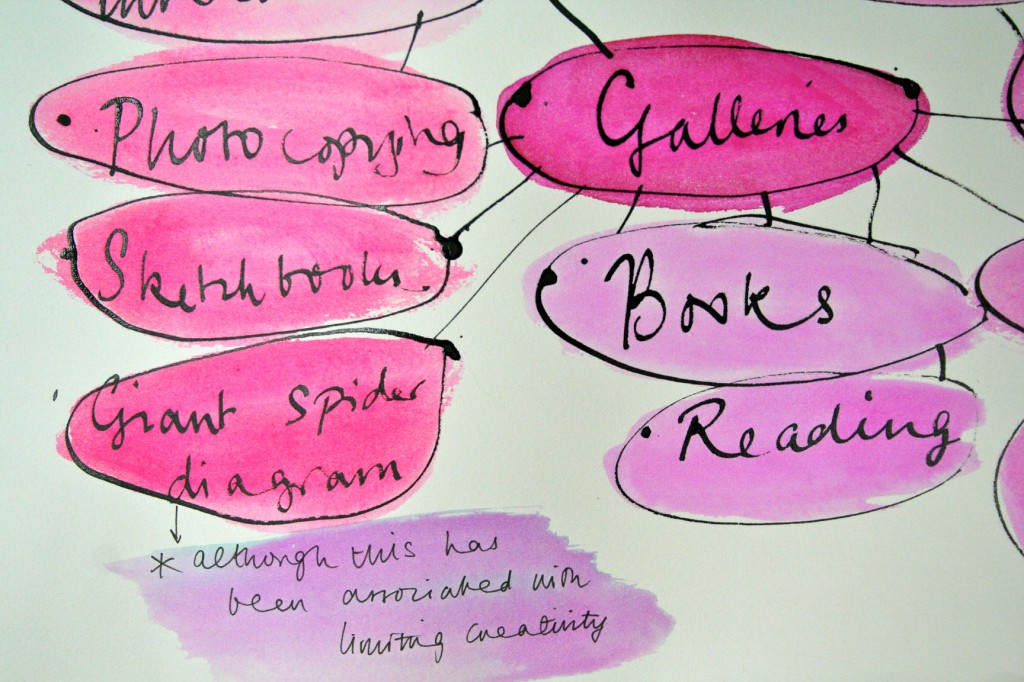 Photocopying
Galleries
Sketchbooks
Books
Giant Spider
diagram
Reading
* although this has
been associated with
limiting creativity